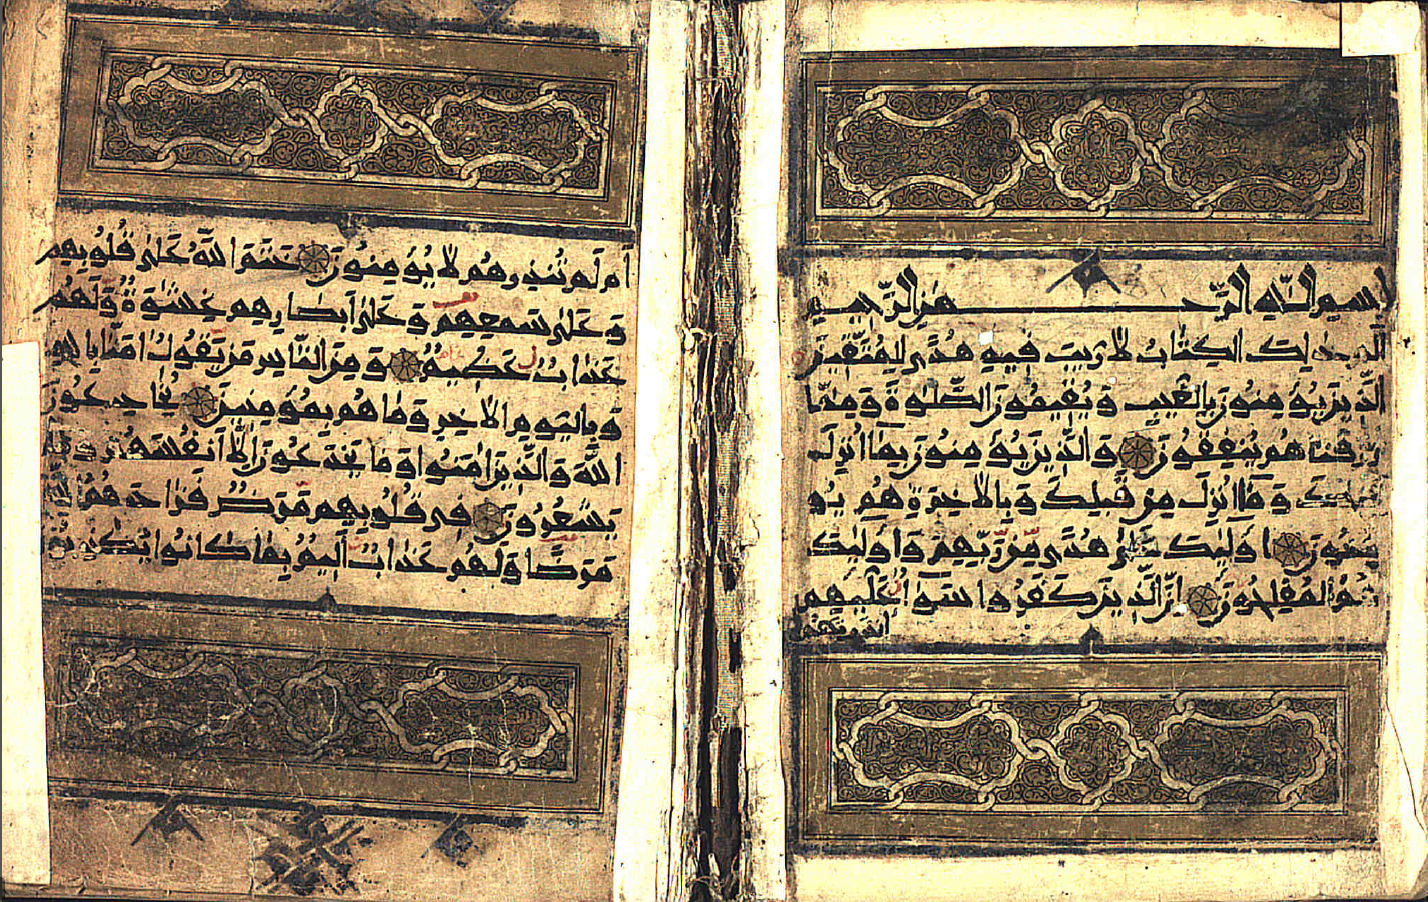 بسم الله الرَّحمٰنِ الرَّحِيمِ
الم ذٰلِكَ الكِتٰابُ لَا رَيبَ فِيهِ هُدًى لِلمُتَّقِينَ
الَّذِينَ يُؤمِنُونَ بِالغَيبِ وَيُقِيمُونَ الصَّلٰوةَ وَمِمَّا
رَزَقنٰاهُم يُنفِقُونَ وَالَّذِينَ يُؤمِنُونَ بِمٰا اُنزِلَ
اِلَيكَ وَمٰا اُنزِلَ مِن قَبلِكَ وَبِالاٰخِرَةِ هُم يُو
قِنُونَ اُولٰئِكَ عَلىٰ هُدًى مِن رَبِّهِم وَاُولٰئِكَ
هُمُ المُفلِحُونَ اِنَّ الَّذِينَ كَفَرُوا سَوَاءٌ عَلَيهِم
ءَاَنذَرتَهُم
اَم لَم تُنذِرهُم لٰا يُؤمِنُونَ خَتَمَ اللّٰهُ عَلىٰ قُلُوبِهِم
وَعَلىٰ سَمعِهِم وَعَلىٰ اَبصٰارِهِم غِشٰاوَةٌ وَلَهُم
عَذٰابٌ عَظِيمٌ وَمِنَ النّٰاسِ مَن يَقُولُ اٰمَنّٰا بِاللّٰهِ
وَبِاليَومِ الاٰخِرِ وَمٰا هُم بِمُؤمِنِينَ يُخٰادِعُونَ
اللّٰهَ وَالَّذِينَ اٰمَنُوا وَمٰا يَخدَعُونَ اِلّٰا اَنفُسَهُم وَمٰا
يَشعُرُونَ فِى قُلُوبِهِم مَرَضٌ فَزٰادَهُمُ اللّٰهُ
مَرَضًا وَلَهُم عَذٰابٌ اَلِيمٌ بِمٰا كٰانُوا يَكذِبُونَ